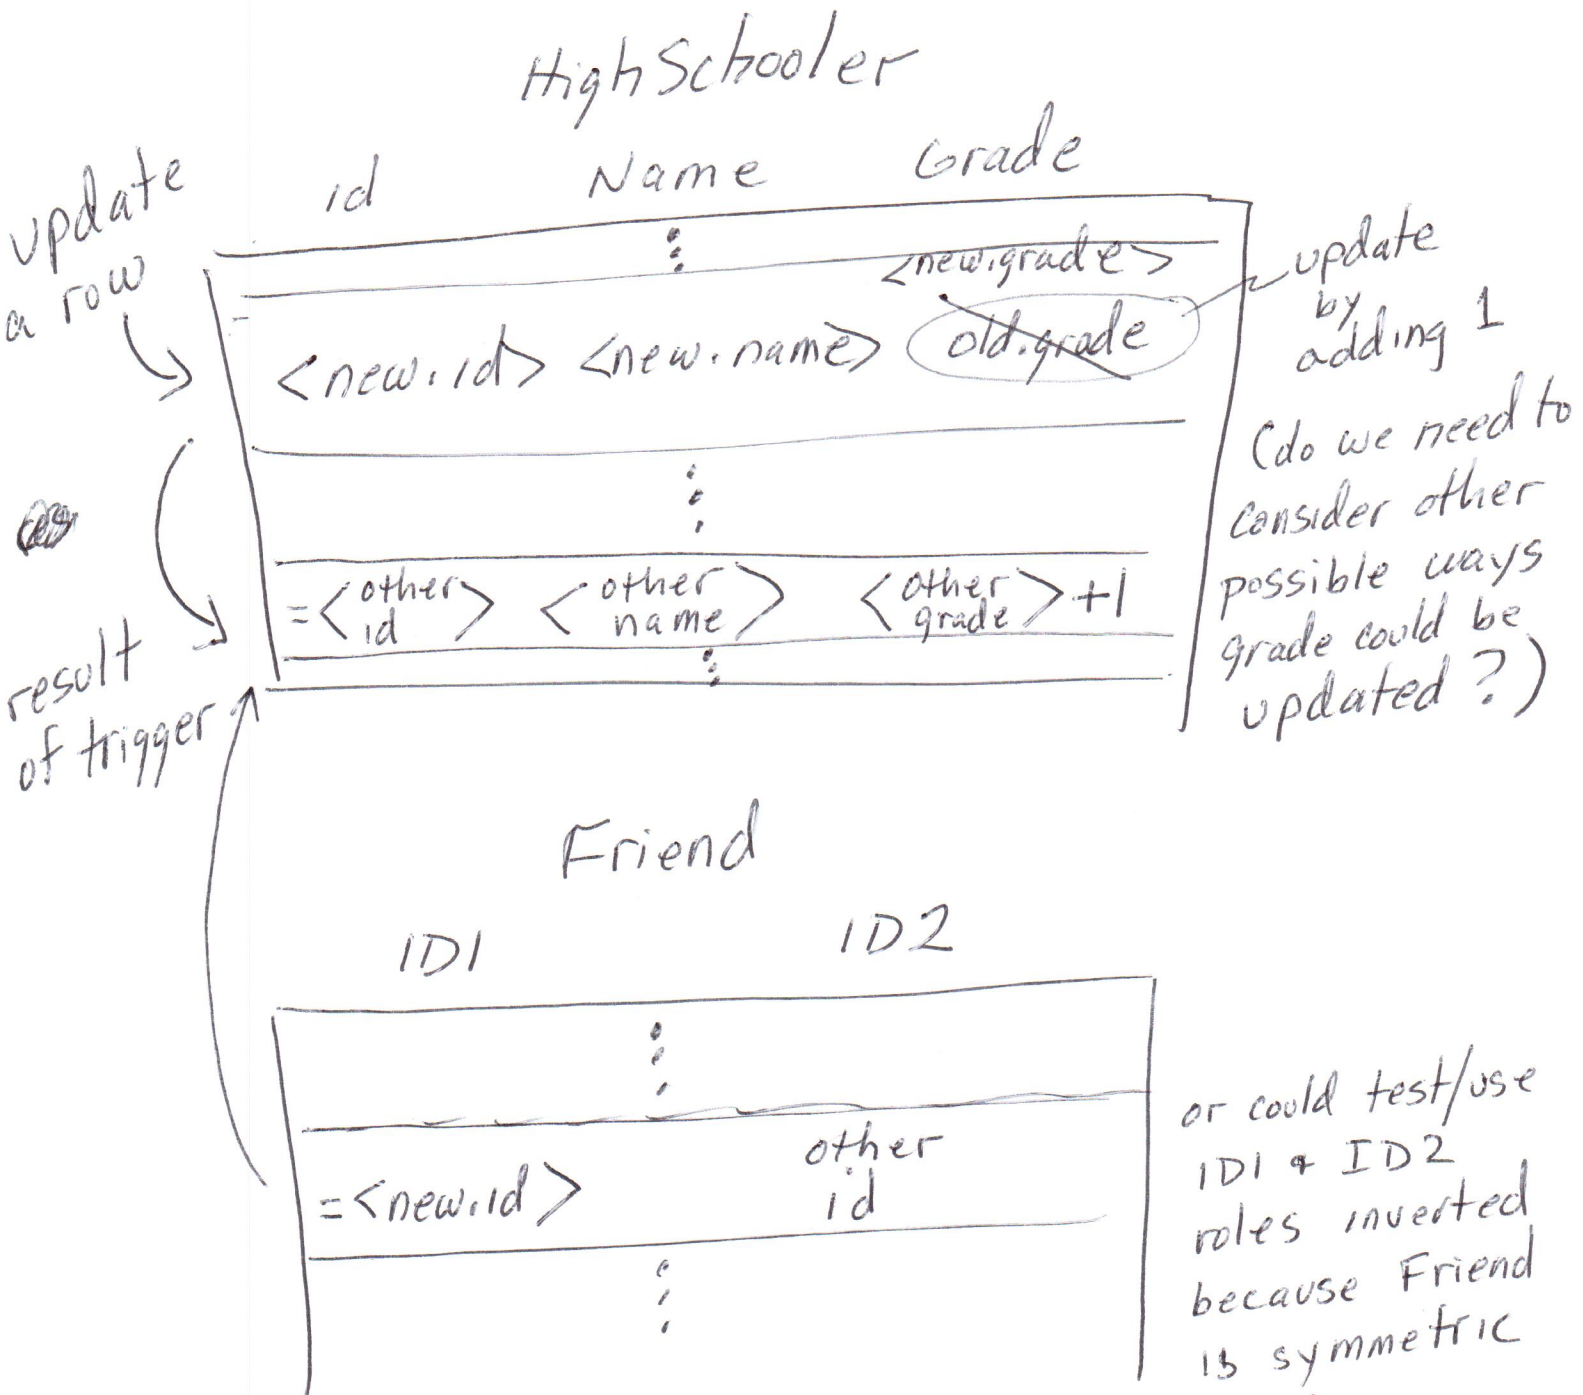 HighSchooler
id Name Grade
update
a row
<new.grade>
<new.id> <new.name> old.grade
update
by
adding 1
(do we need to
consider other
possible ways
grade could be
updated?)
=<other id> <other name> <other grade>+1
result
of trigger
Friend
ID1 ID2
=<new.id> other
id
or could test/use
ID1 & ID2
roles inverted
because Friend
is symmetric